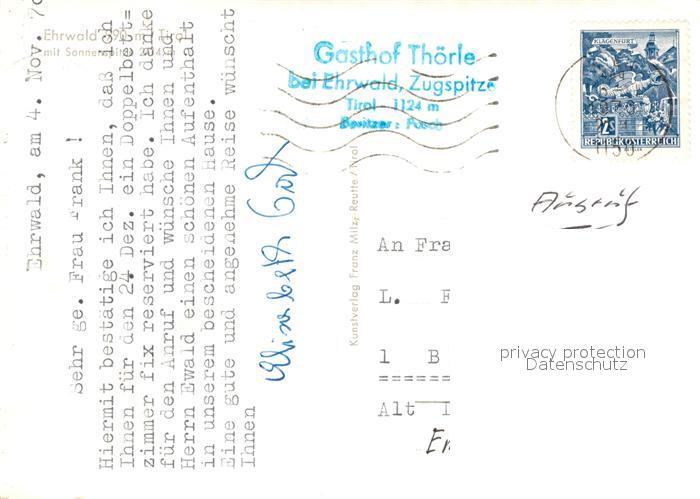 Ehrwald 990 m Tirol
mit Sonnenspitze 2414 m
Ehrwald, am 4. Nov. 70
Sehr ge. Frau Frank !
Hiermit bestätige ich Ihnen, daß ich
Ihnen für den 24 Dez. ein Doppelbett=
zimmer fix reserviert habe. Ich danke
für den Anruf und wünsche Ihnen und
Herrn Ewald einen schönen Aufenthalt
in unserem bescheidenen Hause.
Eine gute und angenehme Reise wünscht
Ihnen
Elisabeth
Kunstverlag Franz Milz, Reutte/Tirol
Gasthof Thörle
bei Ehrwald, Zugspitze
Tirol - 1124 m
Besitzer: Posch
KLAGENFURT
2S
REPUBLIK ÖSTERREICH
An Fra
L. F
1 B
======
Alt
privacy protection
Datenschutz